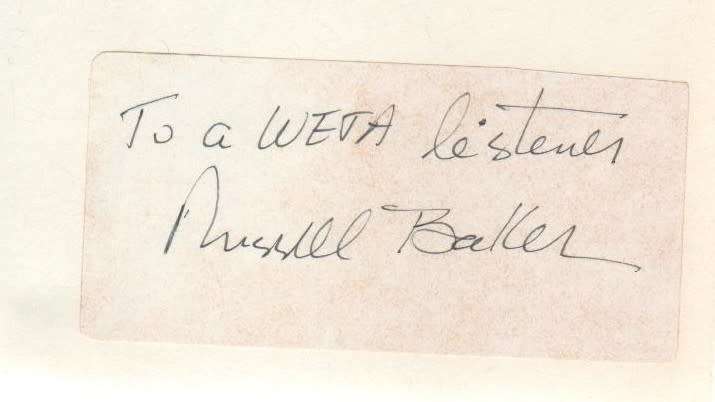 To a WETA listener
Russell Baker